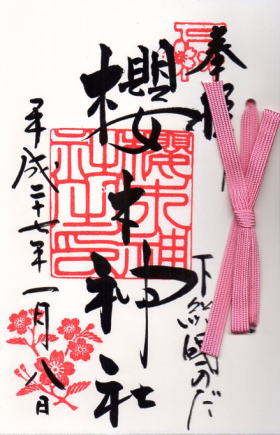 奉拝
下総國のだ
櫻木神社
櫻木神
社之印
平成二十七年一月八日